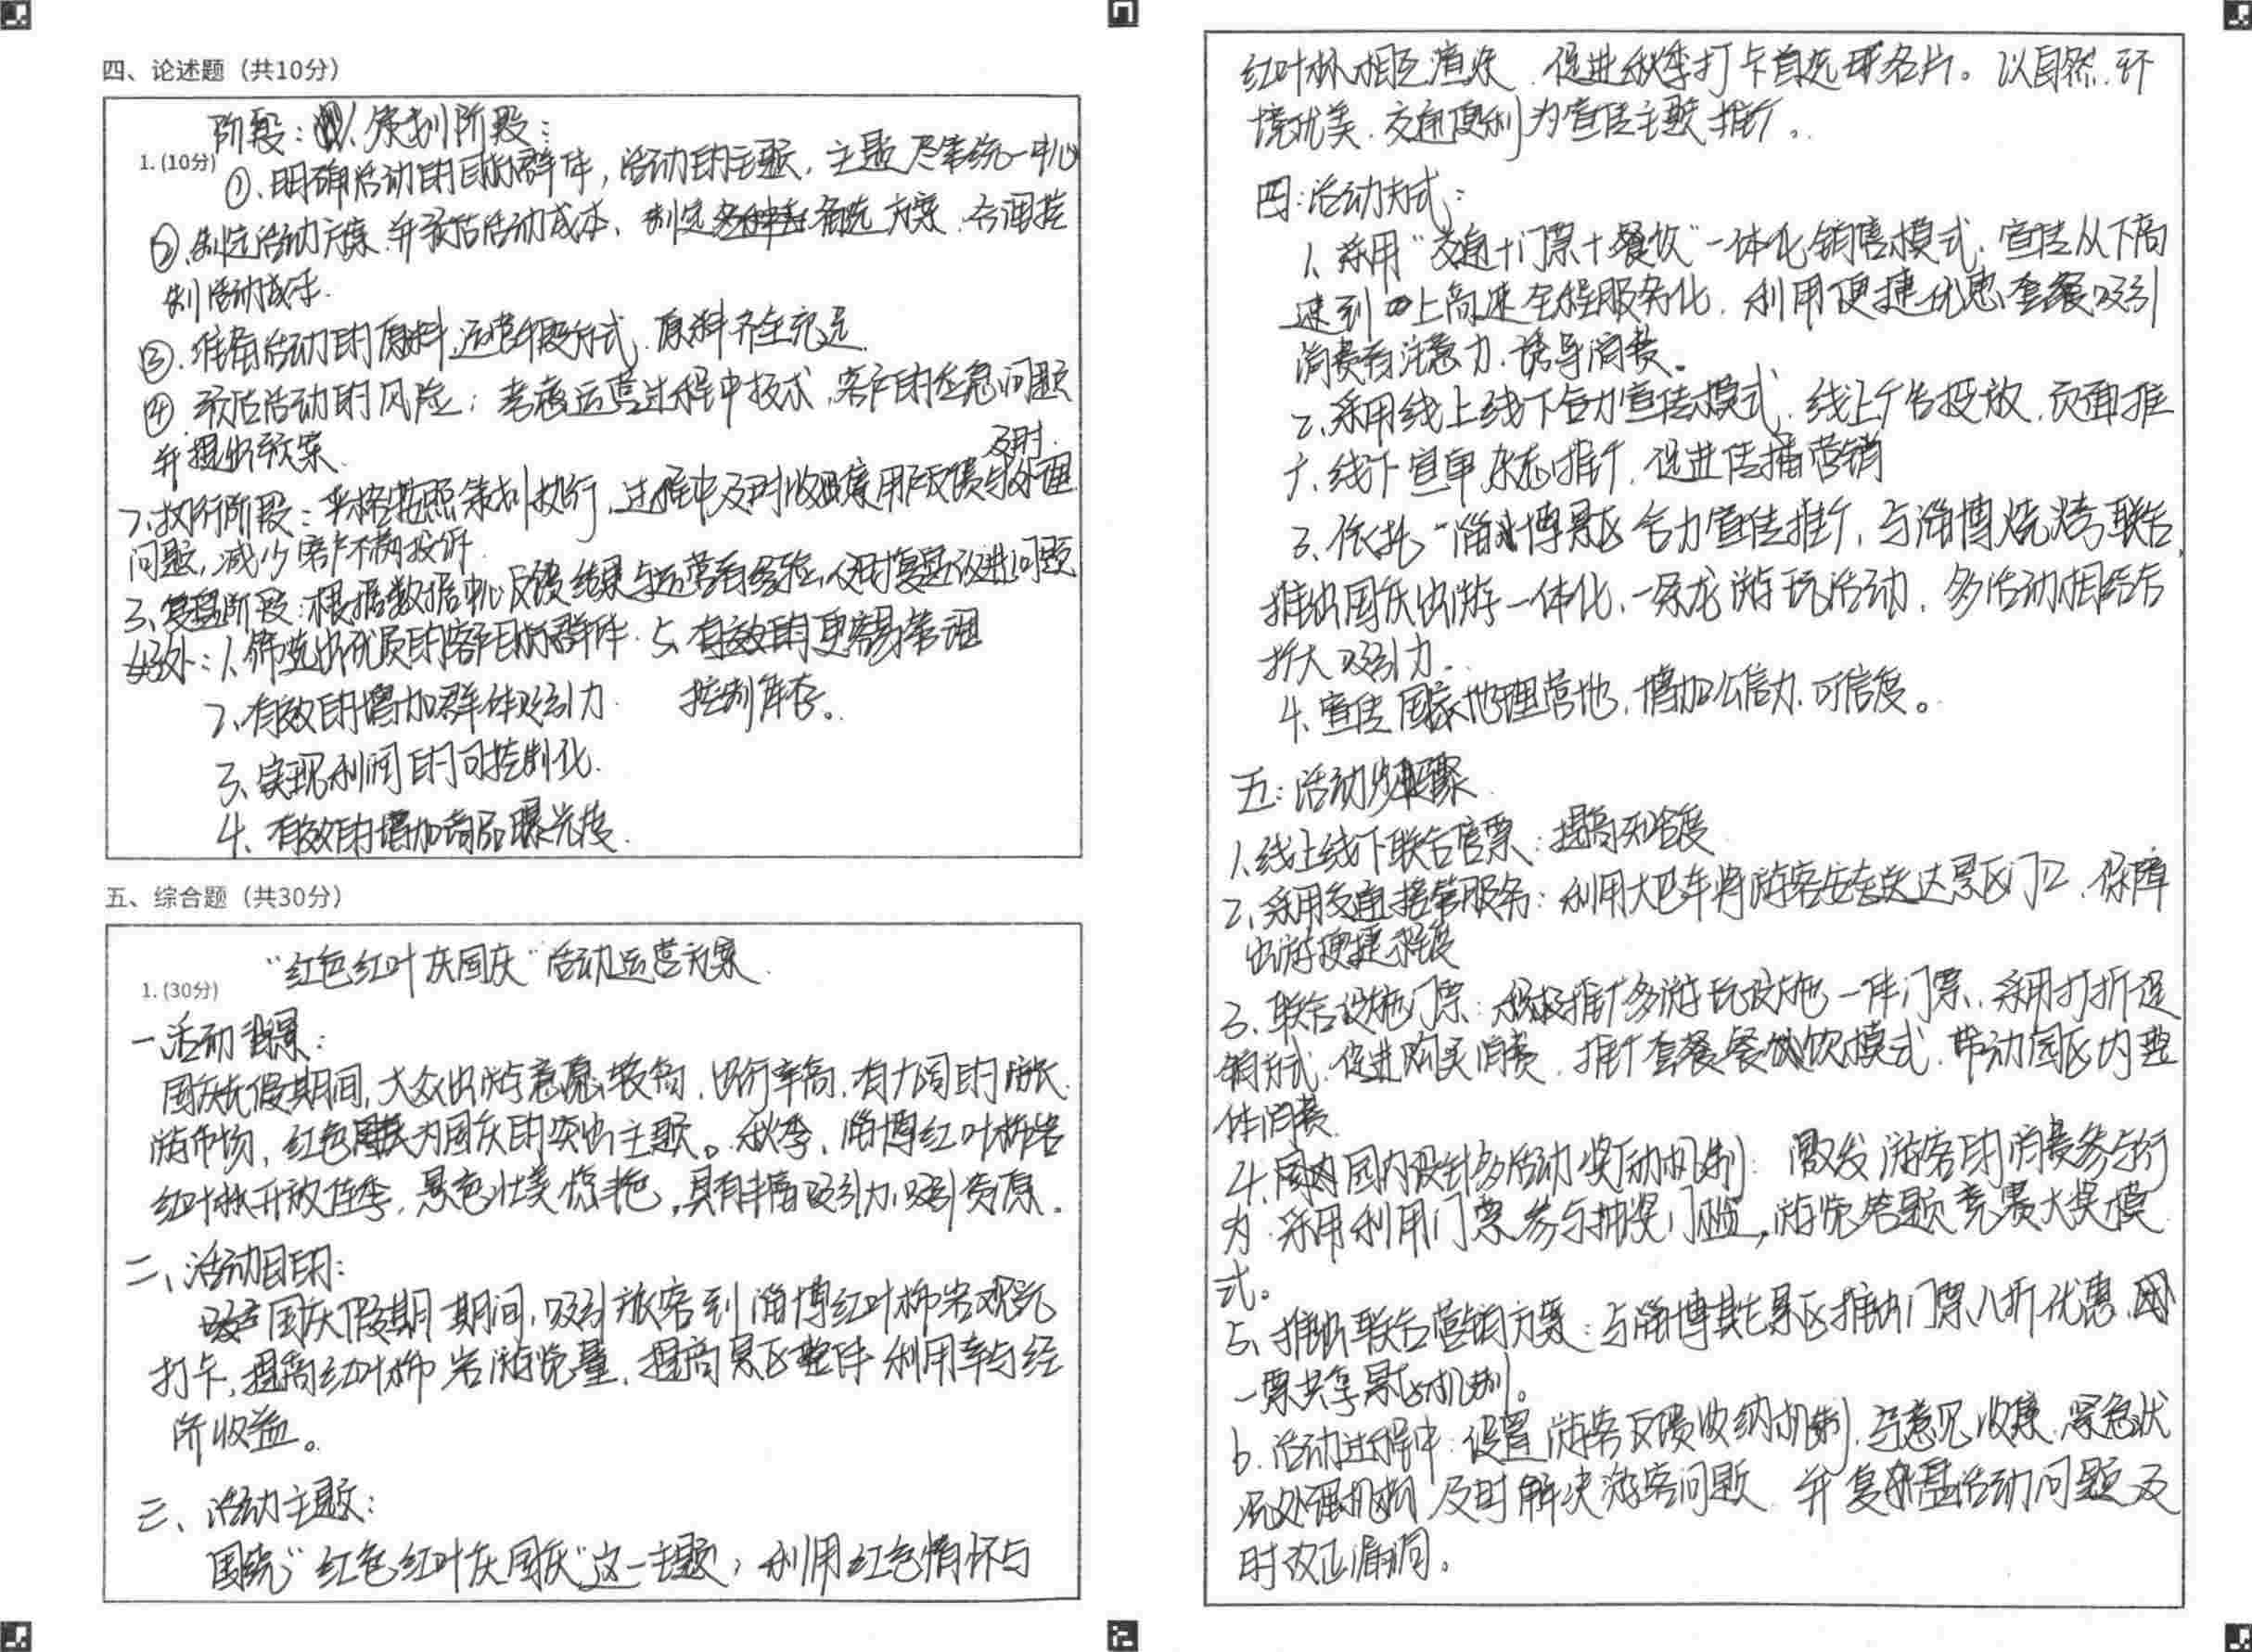 四、论述题（共10分）
阶段：1、策划阶段：
1.(10分)
①.明确活动的目标群体，活动的主题，主题尽量统一中心
②.制定活动方案.并预估活动成本、制定备选方案.合理控
制活动成本.
③.准备活动的原料.运营手段方式.原料齐全充足
④预估活动的风险；考虑运营过程中技术,客户的应急问题
并提出预案.
2.执行阶段：严格按照策划执行，过程中及时收集用户反馈与及时处理
问题,减少客户不满投诉.
3、复盘阶段：根据数据中心反馈结果与运营者经验,及时复盘改进问题
好处：1、筛选出优质的客户目标群体. 5、有效的更容易管理
2、有效的增加群体吸引力. 控制库存。
3、实现利润的可控制化.
4、有效的增加商品曝光度.
五、综合题（共30分）
“红色红叶庆国庆”活动运营方案.
1.(30分)
一活动背景：
国庆长假期间,大众出游意愿较高,出行率高,有广阔的旅
游市场,红色为国庆的突出主题。秋季、淄博红叶柿岩
红叶林开放佳季,景色壮美惊艳,具有丰富吸引力,吸引资源.
二、活动目的：
国庆假期期间,吸引旅客到淄博红叶柿岩观光
打卡,提高红叶柿岩游览量,提高景区整体利用率与经
济收益。
三、活动主题：
围绕“红色红叶庆国庆”这一主题，利用红色情怀与
红叶林相互渲染.促进秋季打卡首选名片。以自然.环
境优美.交通便利为宣传主题推广。
四：活动方式：
1、采用“交通+门票+餐饮”一体化销售模式.宣传从下高
速到上高速全程服务化.利用便捷优惠套餐吸引
消费者注意力.诱导消费。
2、采用线上线下合力宣传模式.线上广告投放.页面推
广.线下宣单推广,促进传播营销
3、依托淄博景区合力宣传推广,与淄博烧烤联合
推出国庆出游一体化,一条龙游玩活动.多活动相结合
扩大吸引力.
4、宣传国家地理营地,增加公信力.可信度。
五：活动步骤
1、线上线下联合售票：提高知名度
2、采用交通接管服务：利用大巴车将游客安全送达景区门口.保障
出游便捷程度
3、联合设施门票：积极推广多游玩设施一体门票.采用打折促
销方式.促进购买消费.推广套餐餐饮模式.带动园区内整
体消费.
4.园内设计多活动奖励机制：激发游客的消费参与行
为.采用利用门票参与抽奖门槛,游览答题竞赛大奖模
式。
5、推出联合营销方案：与淄博其它景区推出门票八折优惠.
一票共享景区机制。
6.活动过程中.设置游客反馈收纳机制.与意见收集.紧急状
况处理机制及时解决游客问题.并复盘活动问题及
时改正漏洞。